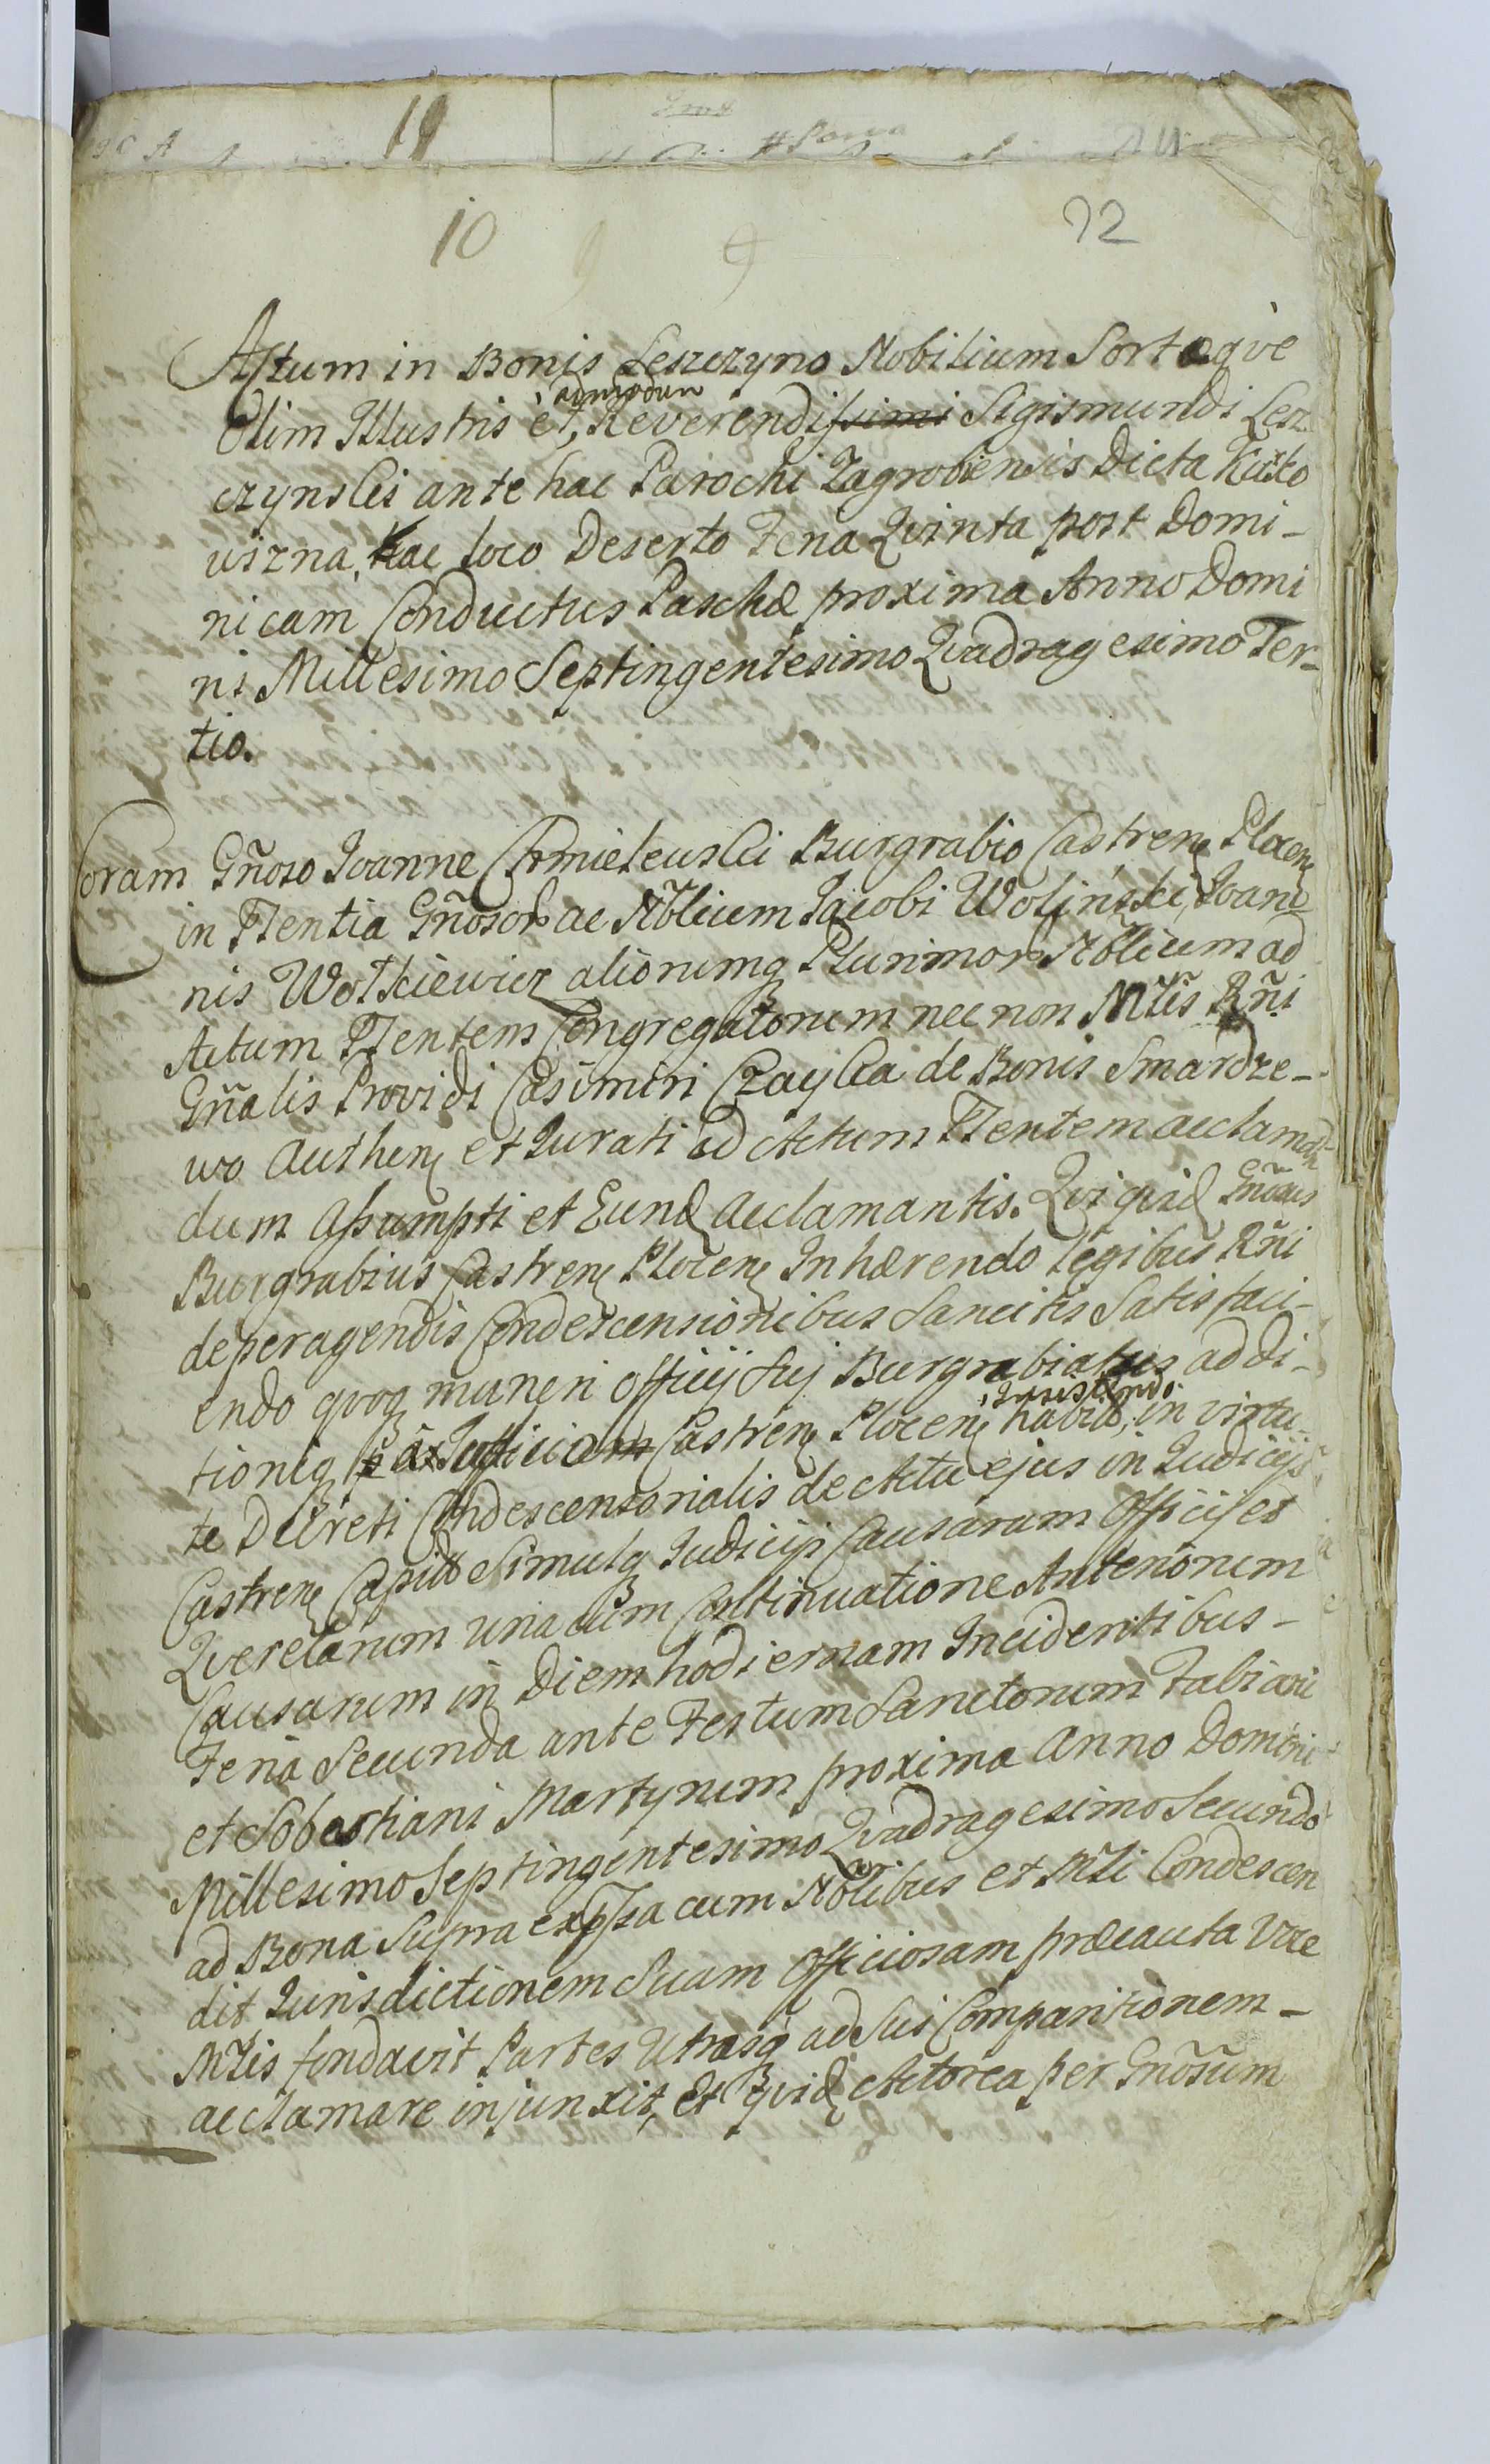 19
10 9 9 92
Actum in Bonis Leszczyno Nobilium Sorteqve
Olim Illustris et admodum Reverendissimi Sigismundi Lesz
czynski ante hac Parochi Zagrobensis Dicta Kutko
wizna, hac loco Deserto Feria Qvinta post Domi-
nicam Conductus Paschæ proxima Anno Domi
ni Millesimo Septingentesimo Qvadragesimo Ter-
tio.
Coram Gñoso Joanne Chmielewski Burgrabio Castren Plocen
in Pſentia Gñosor ac Nõblium Jacobi Woliński, Joan
nis Wołkiewicz aliorumq Plurimor Nõblium ad
Actum Pſentem Congregatorum nec non Mrlis Rñi
Gñalis Providi Casimiri Czayka de Bonis Smardze-
wo Authen et Jurati ad Actum Pſentem acclaman
dum Assumpti et Eund acclamantis. Qvi qvid Gñosus
Burgrabius Castren Plocen Inhærendo legibus Rñi
de peragendis Condescensionibus Sancitis Satisfaci-
endo qvoq muneri Officij Sui Burgrabiatus addi-
tioniq Castren Plocen habit, Insistendo in virtu-
te Decreti Condescensorialis de Actu ejus in Judicijs
Castren Capit Simulq Judicijs Causarum Officij et
Qverelarum una cum Continuatione Anteriorum
Causarum in Diem hodiernam Incidentibus -
Feria Secunda ante Festum Sanctorum Fabiani
et Sebastiani Martyrum proxima Anno Domini
Millesimo Septingentesimo Qvadragesimo Secundo
ad Bona Supra expſsa cum Nõblibus et Mrli Condescen
dit Jurisdictionem Suam Officiosam præcauta Voce
Mrlis fundavit Partes Utrasq ad Sui Comparitionem -
acclamare injunxit, et qvid Actorea per Gñosum